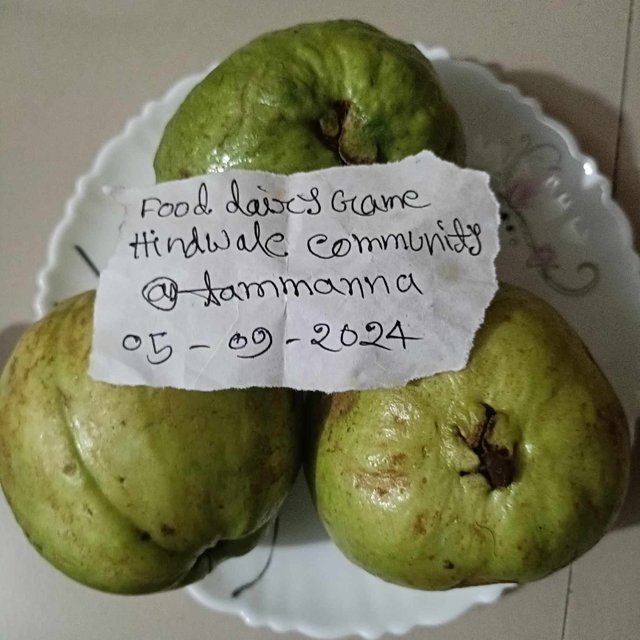 Food dairys Game
Hindwale community
@tammanna
05-09-2024